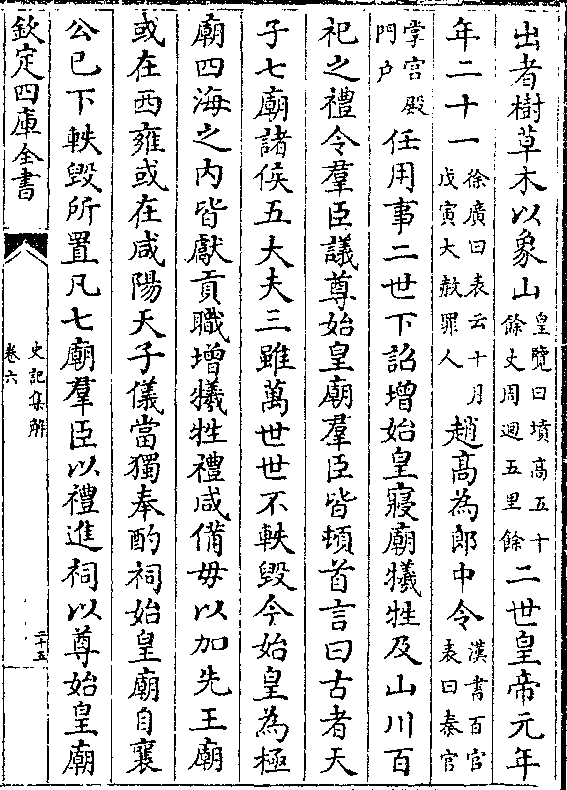 出者樹草木以象山皇覽曰墳高五十餘丈周迴五里餘二世皇帝元年
年二十一徐廣曰表云十月戊寅大赦罪人趙高為郎中令漢書百官表曰秦官
掌宮殿門户任用事二世下詔增始皇寢廟犧牲及山川百
祀之禮令羣臣議尊始皇廟羣臣皆頓首言曰古者天
子七廟諸侯五大夫三雖萬世世不軼毀今始皇為極
廟四海之内皆獻貢職增犧牲禮咸備毋以加先王廟
或在西雍或在咸陽天子儀當獨奉酌祠始皇廟自襄
公已下軼毀所置凡七廟羣臣以禮進祠以尊始皇廟
欽定四庫全書
史記集解
卷六
二十五